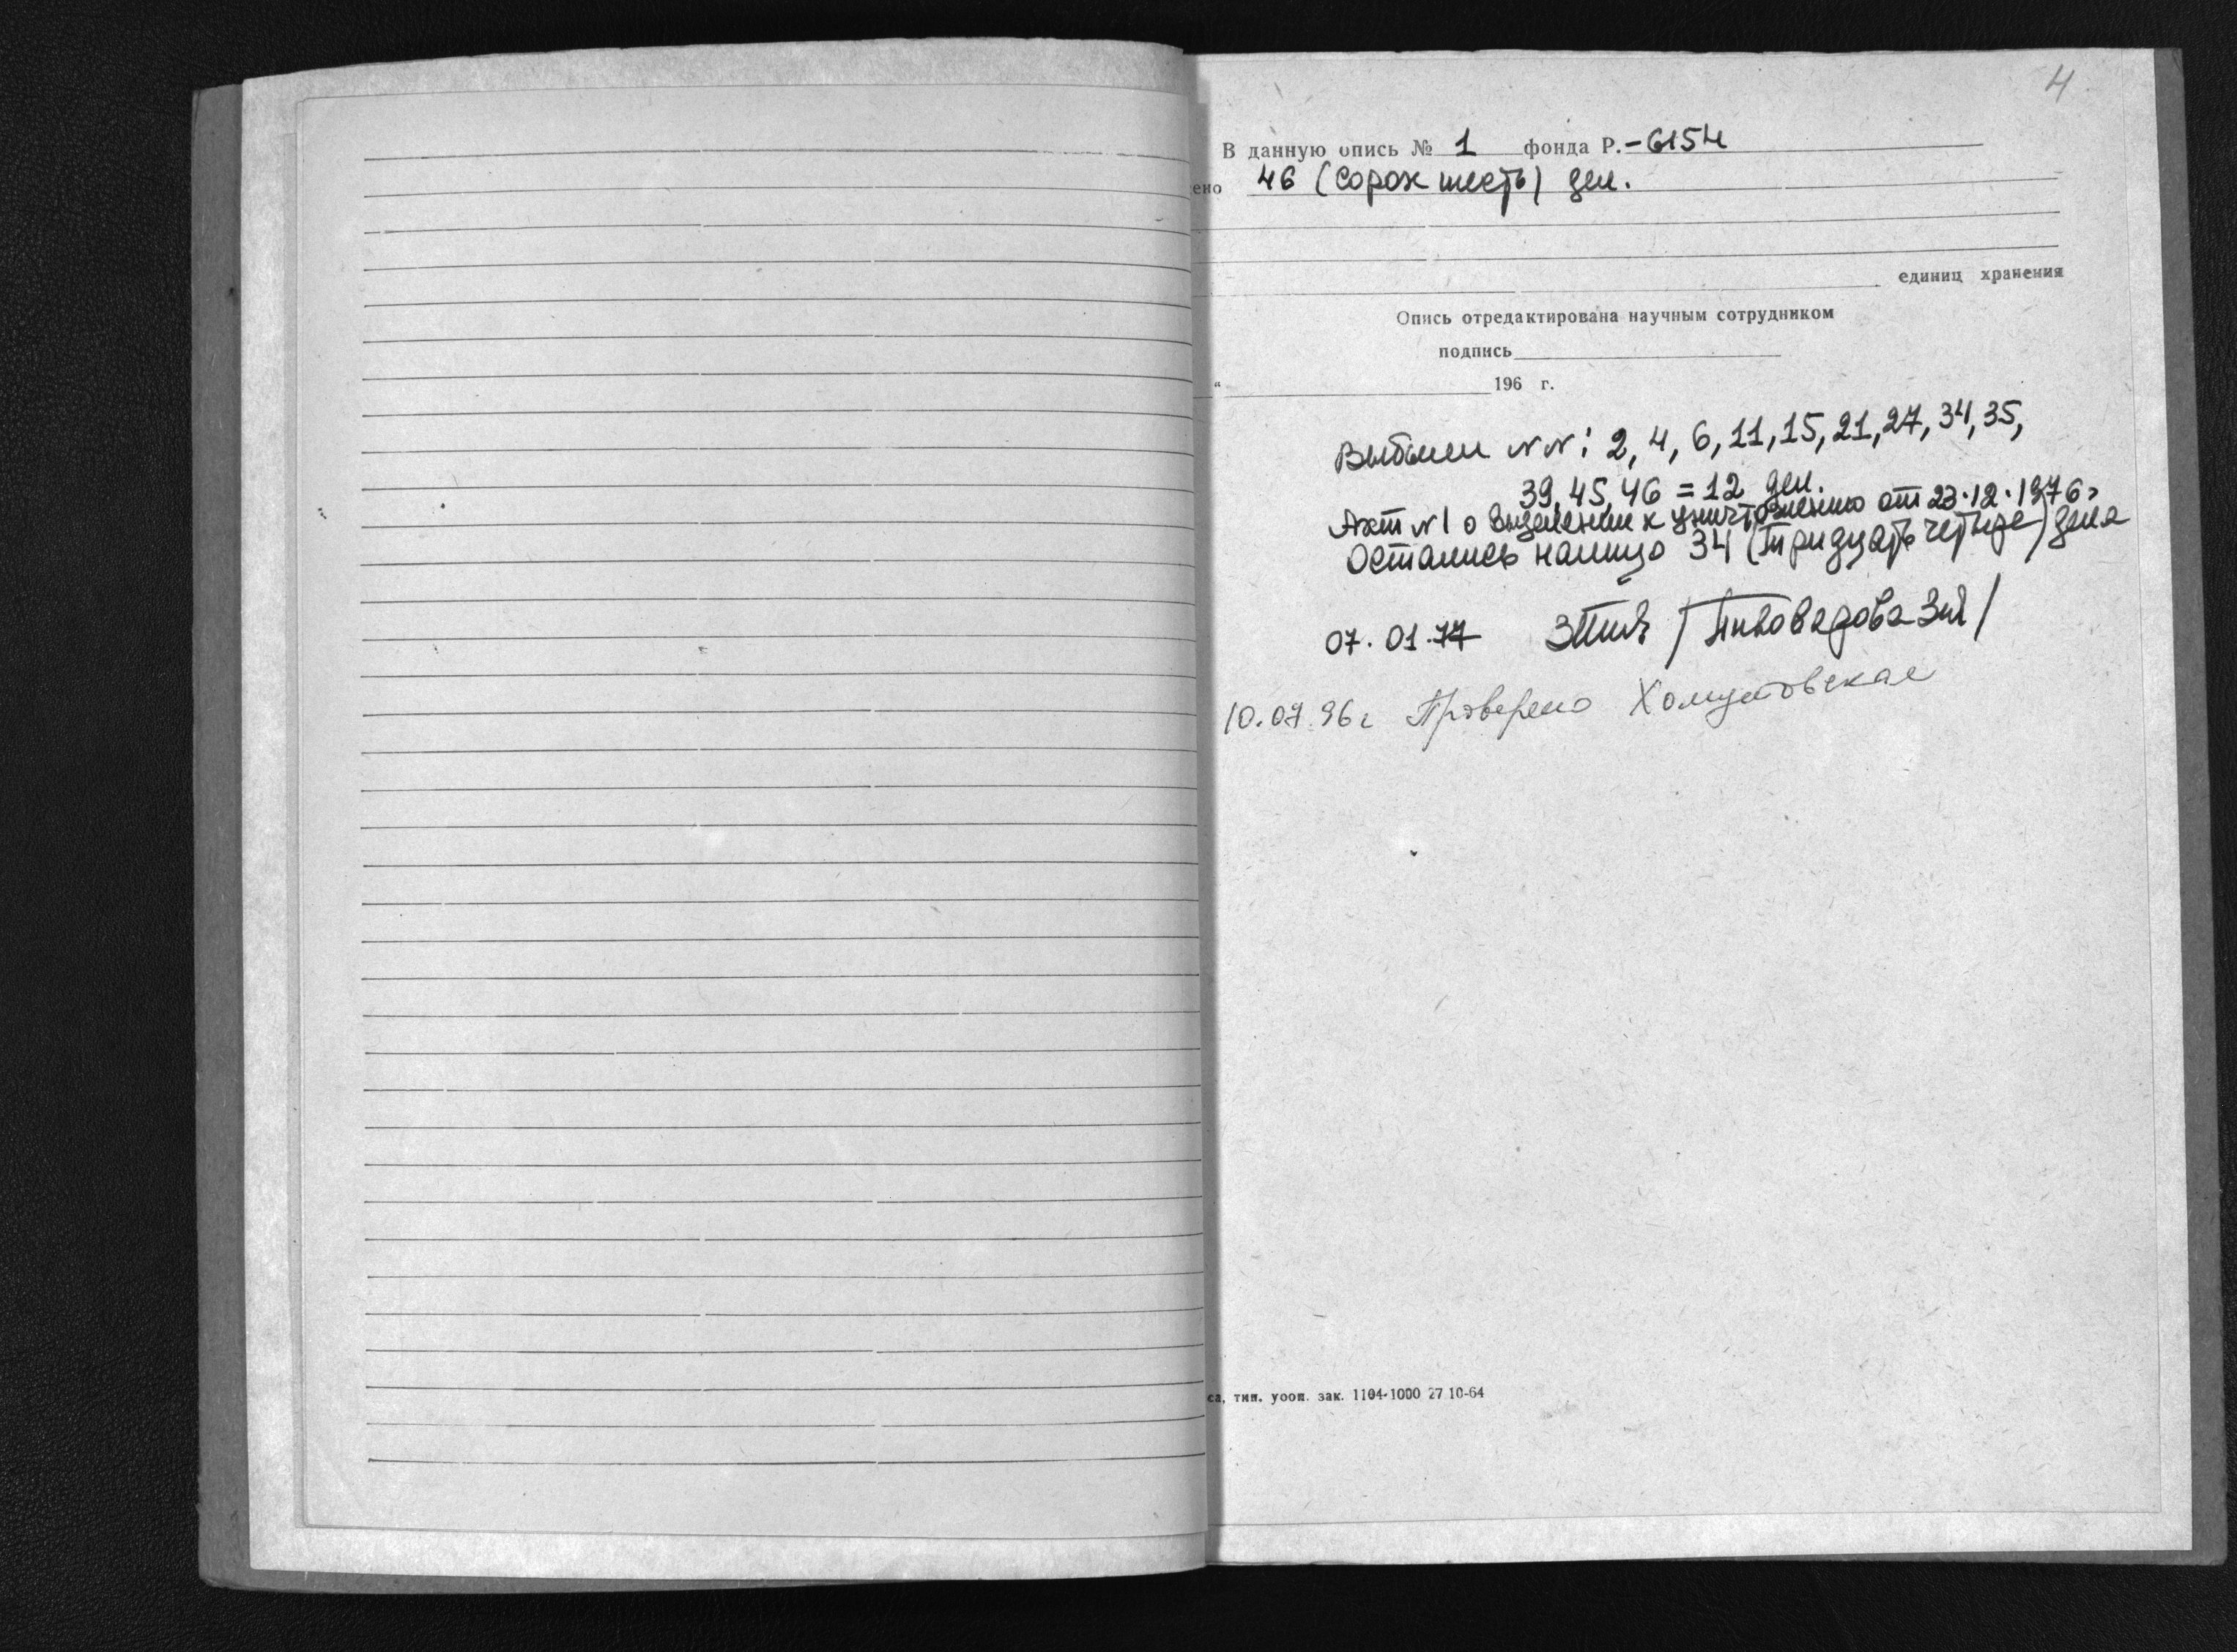 4
В данную опись № 1 фонда Р.-6154
ено 46 (сорок шесть) дел.
единиц хранения
Опись отредактирована научным сотрудником
подпись
“ 196 г.
Выбыли NN: 2, 4, 6, 11, 15, 21, 27, 34, 35,
39, 45, 46 = 12 дел.
Акт N1 о выделении к уничтожению от 23.12.1976г
Остались налицо 34 (тридцать четыре) дела
07.01.77 /Пивоварова
10.07.96г Проверено Хомутовская
са, тип. уооп. зак. 1104-1000 27 10-64